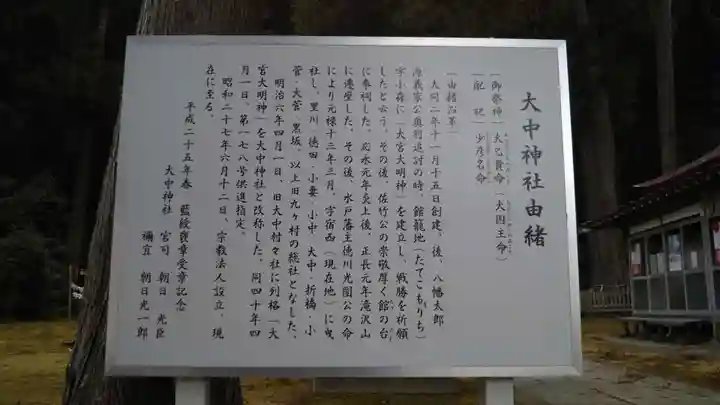 大中神社由緒
一御祭神 大己貴命(大国主命)
一配祀 少彦名命
一由緒沿革
大同二年十一月十五日創建、後、八幡太郎
源義家公奥羽追討の時、館籠地(たてこもりち)
字小荷に「大宮大明神」を建立し、戦勝を祈願
したと云う。その後、佐竹公の崇敬厚く館の台
に奉祠した。応永元年炎上後、正長元年滝沢山
に遷座した。その後、水戸藩主徳川光圀公の命
により元禄十三年三月、字宿西(現在地)に曳
社し、里川・徳田・小妻・小中・大中・折橋・小
菅・大菅・黒坂、以上旧九ヶ村の総社となした。
明治六年四月一日、旧大中村々社に列格「大
宮大明神」を大中神社と改称した。同四十年四
月一日、第一七八号供進指定。
昭和二十七年六月十二日、宗教法人設立 現
在に至る。
平成二十五年春 藍綬褒章受章記念
大中神社 宮司 朝日光臣
禰宜 朝日光一郎